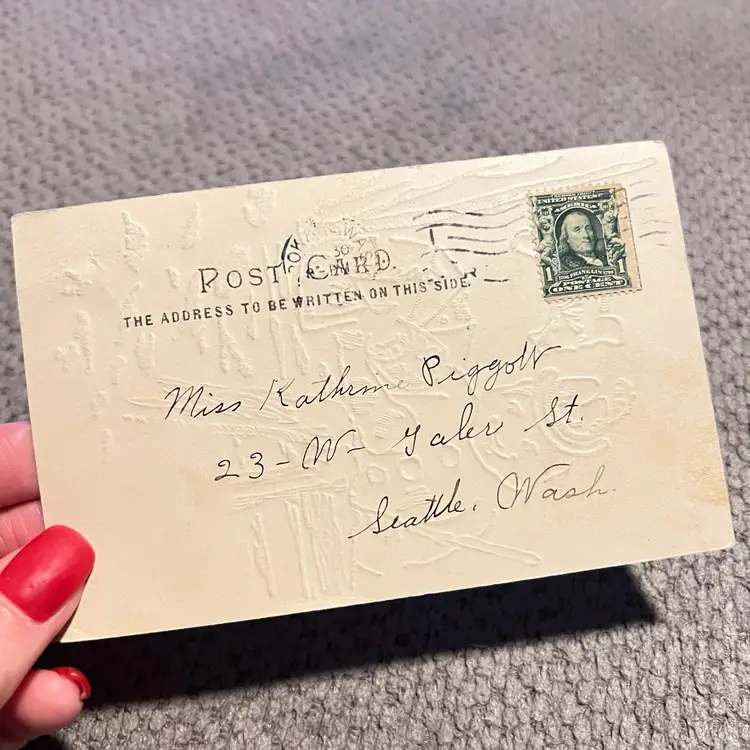 POST CARD.
THE ADDRESS TO BE WRITTEN ON THIS SIDE.
SERIES 1902
UNITED STATES OF
AMERICA
1 1
1706 FRANKLIN 1790
POSTAGE
ONE CENT
30
Miss Kathrine Piggott
23-W- Galer St.
Seattle, Wash.